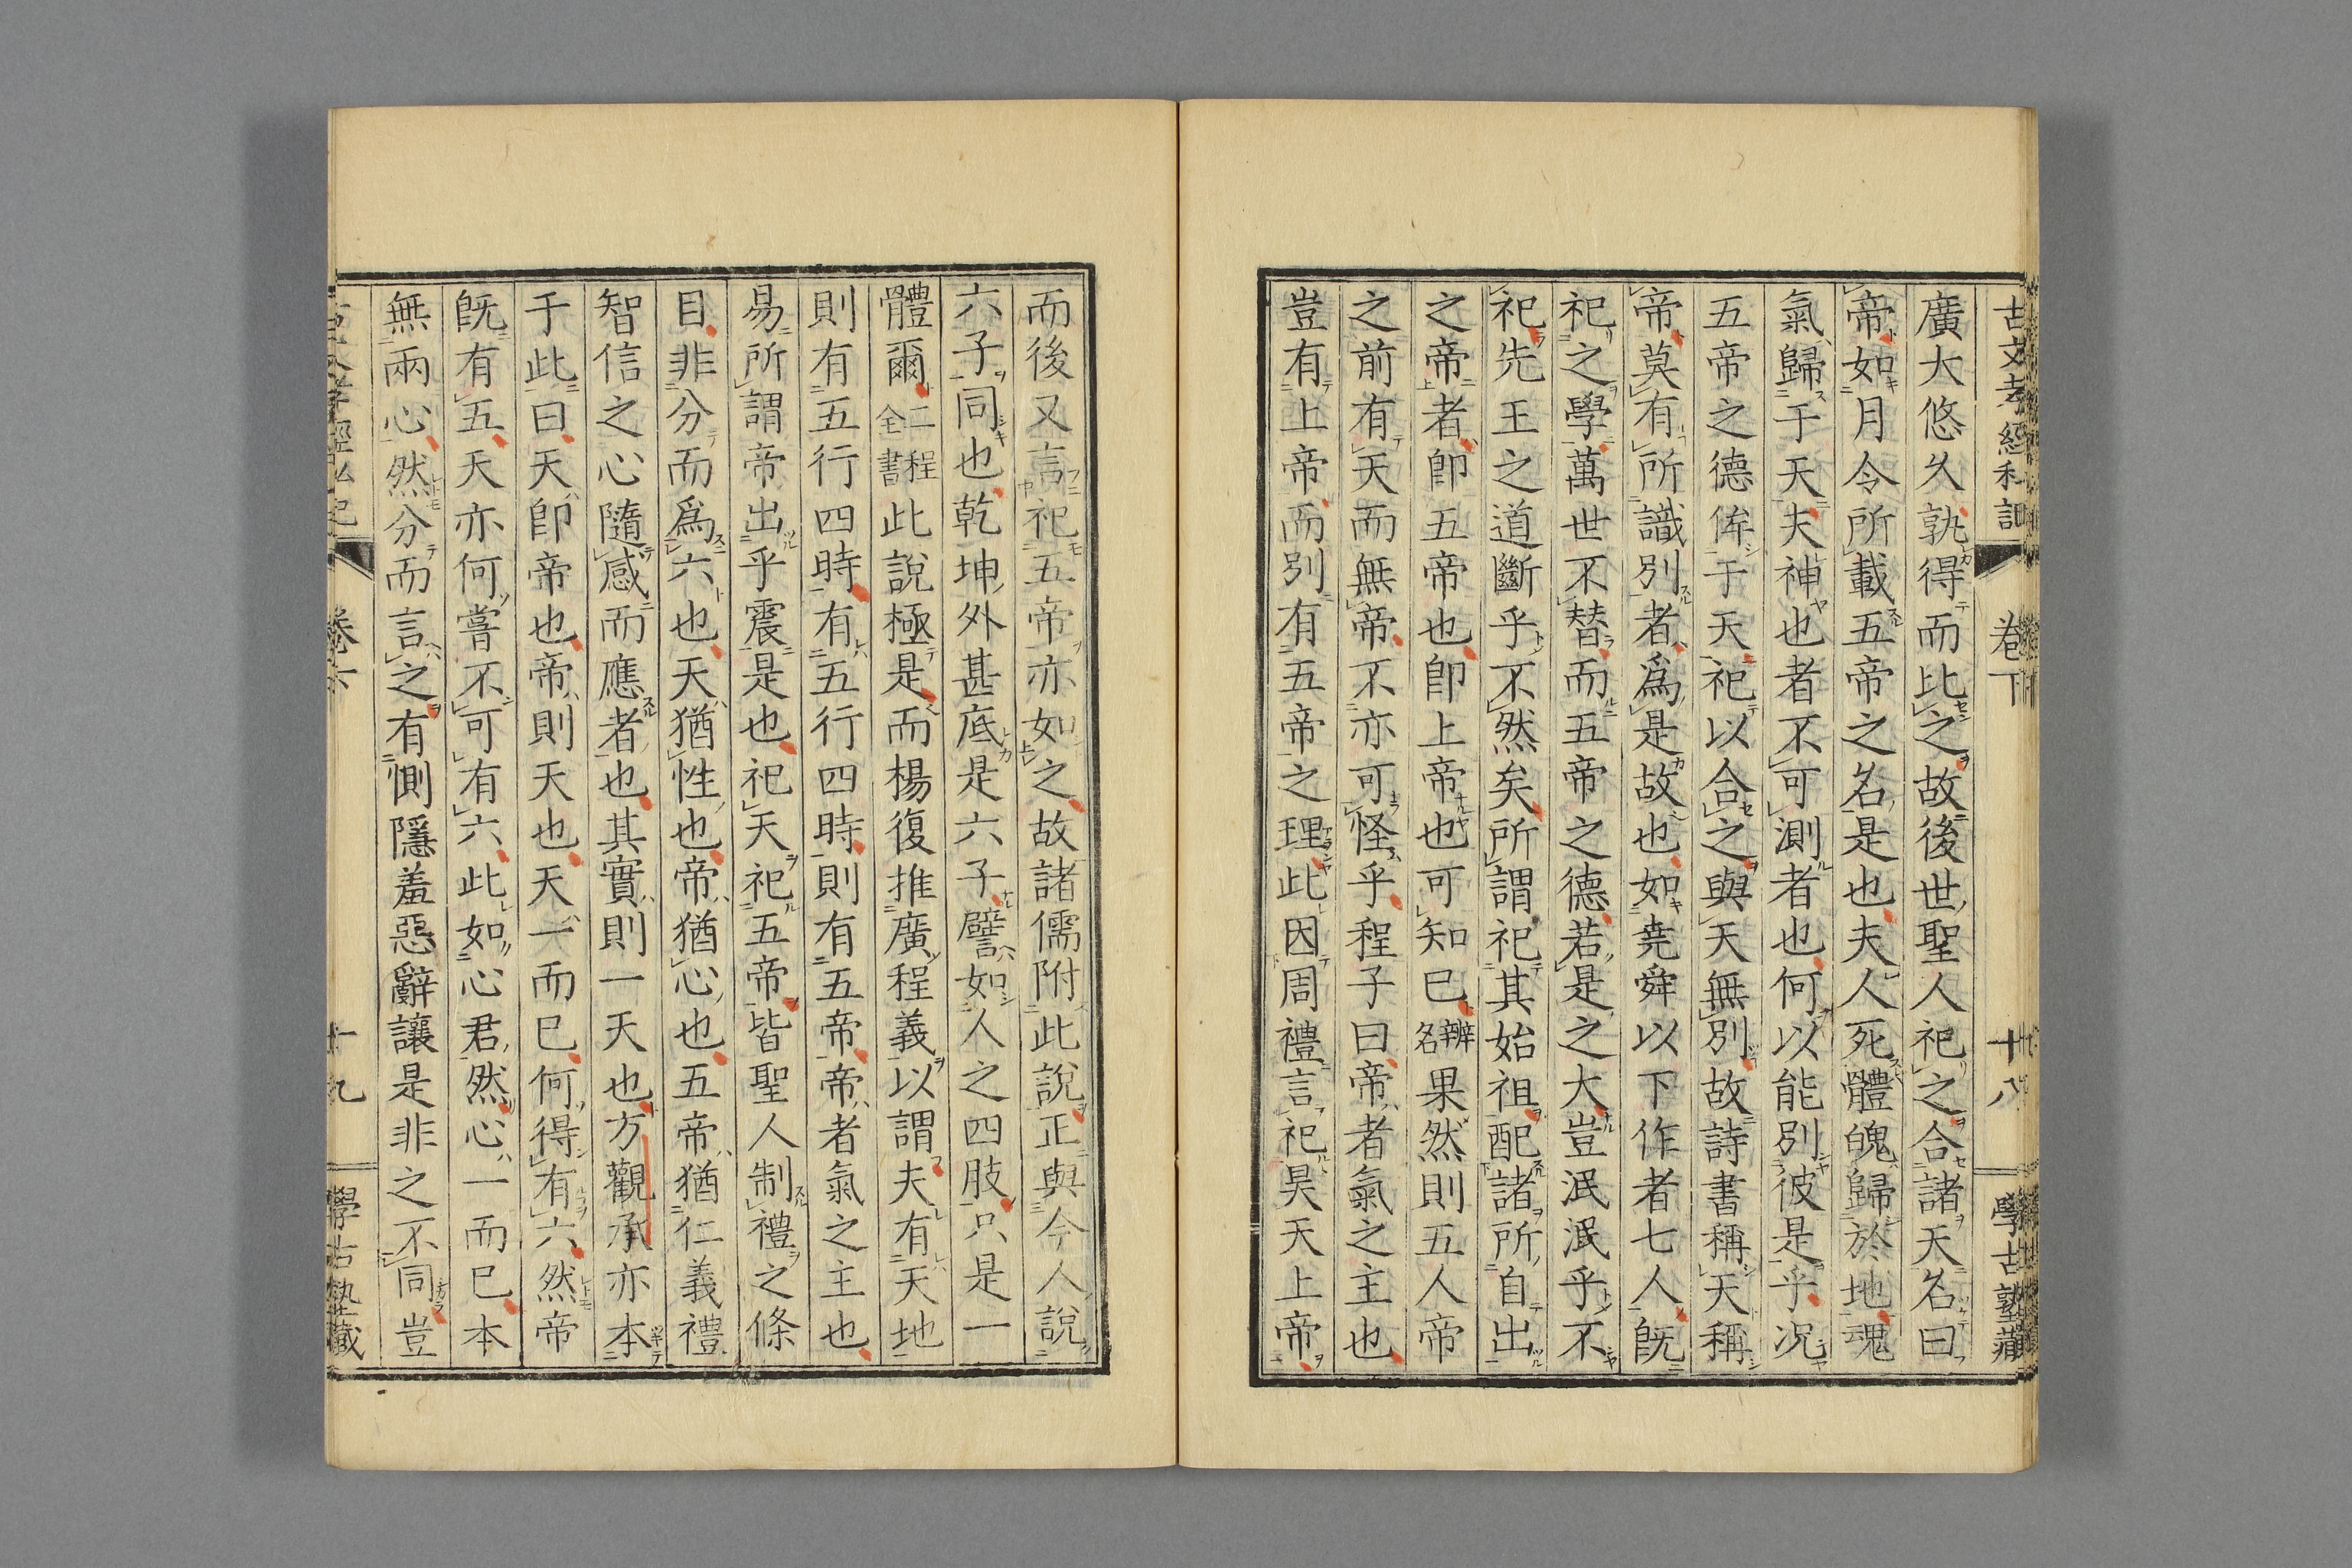 古文孝經私記 卷下 十八 學古塾藏
廣大悠久孰得而比之故後世聖人祀之合諸天名曰
帝如月令所載五帝之名是也夫人死體魄歸於地魂
氣歸于天夫神也者不可測者也何以能別彼是乎況
五帝之德侔于天祀以合之與天無別故詩書稱天稱
帝莫有所識別者爲是故也如堯舜以下作者七人既
祀之學萬世不替而五帝之德若是之大豈泯泯乎不
祀先王之道斷乎不然矣所謂祀其始祖配諸所自出
之帝者卽五帝也卽上帝也可知巳辨名果然則五人帝
之前有天而無帝不亦可怪乎程子曰帝者氣之主也
豈有上帝而別有五帝之理此因周禮言祀昊天上帝
而後又言祀五帝亦如之故諸儒附此說正與今人說
六子同也乾坤外甚底是六子譬如人之四肢只是一
體爾二程全書此說極是而楊復推廣程義以謂夫有天地
則有五行四時有五行四時則有五帝帝者氣之主也
易所謂帝出乎震是也祀天祀五帝皆聖人制禮之條
目非分而爲六也天猶性也帝猶心也五帝猶仁義禮
智信之心隨感而應者也其實則一天也方觀承亦本
于此曰天卽帝也帝則天也天一而巳何得有六然帝
既有五天亦何嘗不可有六此如心君然心一而巳本
無兩心然分而言之有惻隱羞惡辭讓是非之不同豈
卷下 十九 學古塾藏